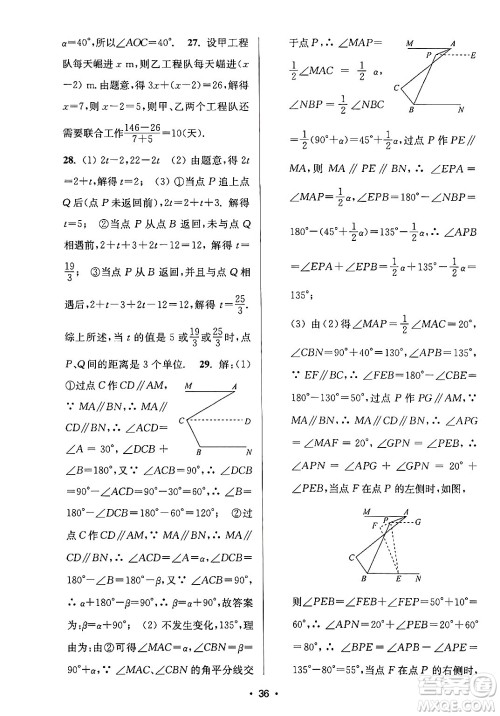 α=40°,所以∠AOC=40°. 27. 设甲工程
队每天崛进 x m,则乙工程队每天崛进(x-
2) m. 由题意,得 3x+(x-2)=26. 解得
x=7, x-2=5,则甲、乙两个工程队还
需要联合工作(146-26)/(7+5)=10(天).
28. (1) 2t-2,22-2t (2) 由题意,得 2t-
2+t=12. 解得 t=14/3 (3) ①当点 P 追上点
Q后(点 P 未返回前),2t=12+t-3. 解得
t=5; ②当点 P 从点 B 返回,未与点 Q
相遇前,2+t-3+2t-12=12. 解得 t=
19/3 ③当点 P 从点 B 返回,并且与点 Q 相
遇后,2+t-3+2t-12=12. 解得 t=25/3.
综上所述,当 t 的值是 5 或19/3或25/3时,点
P、Q间的距离是 3 个单位. 29. 解:(1)
①过点 C 作 CD∥AM,
∵ MA∥BN,∴ MA∥
CD∥BN,∴ ∠ACD=
∠A = 30°,∠BCD +
∠B=180°,又∵ ∠ACB=90°,∴ ∠BCD=
90°-∠ACD=90°-30°=60°,∴ ∠B=
180°-∠BCD=180°-60°=120°. ②过
点 C 作 CD∥AM,∵ MA∥BN,∴ MA∥
CD∥BN,∴ ∠ACD=∠A=α,∠BCD+
∠B=180°,∴ ∠BCD=180°-∠B=
180°-β,又∵ ∠ACD+∠BCD=90°,
∴ α+180°-β=90°,∴ β=α+90°,故答案
为:β=α+90°; (2) 不发生变化,135°,理由
如下:由②可得∠B=∠MAC+90°=α+
90°,∵ ∠MAC、∠CBN 的角平分线交
M
A
C
D
B
N
于点 P,∴ ∠MAP=
1/2∠MAC = 1/2α,
∠NBP = 1/2∠NBC=
1/2(90°+α)=45°+1/2α,过点 P 作 PE∥
MA,则 MA∥PE∥BN,∴ ∠EPA=
∠MAP=1/2α,∠BPE=180°-∠NBP=
180°-(45°+1/2α)=135°-1/2α,∴ ∠APB
=∠EPA+∠BPE=1/2α+135°-1/2α=
135°;
(3) 由(2)得∠MAP=∠CAP=20°,
∠CBN=90°+40°=130°,∠CBP=65°,
∵ EF∥BC,∴ ∠BEF=180°-130°=50°,
过点 P 作 PG∥MA,则∠APG=
∠MAF=20°,∠GPN=∠PEB,∴ ∠APN
=∠APG+∠GPN=∠PEB+20°,
当点 F 在点 P 的左侧时,如图,
M
A
P
E
C
B
N
M
A
F
P
G
C
B
E
N
则∠PEB=∠BEF+10°=50°+10°=
60°,∴ ∠APE=∠PEB+20°=60°+20°
=80°,当点 F 在点 P 的右侧时,如
36